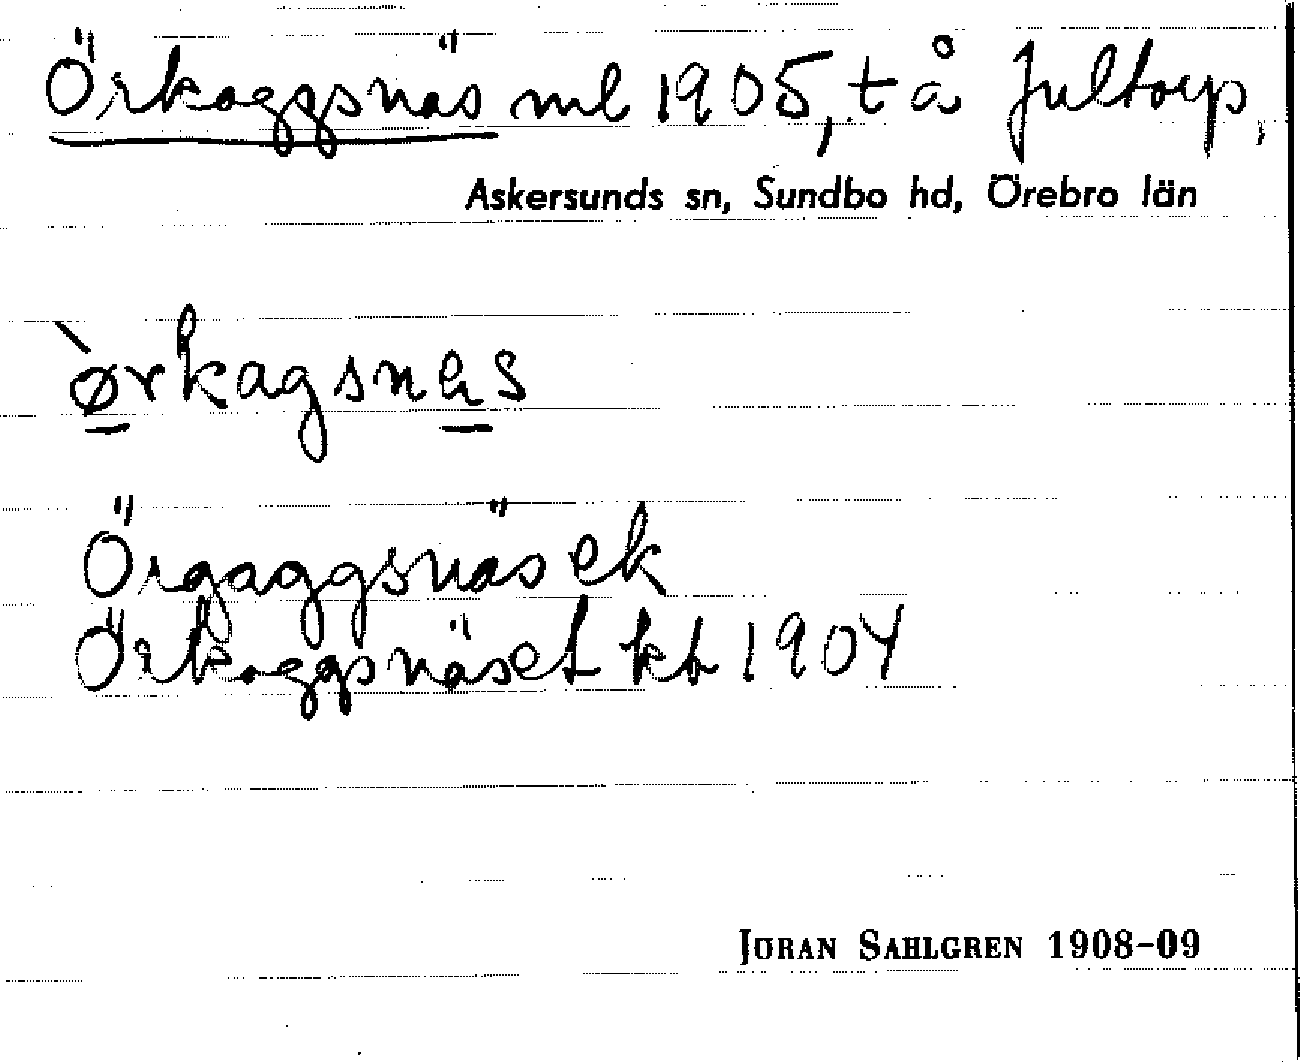 Örkaggsnäs ml 1905, t å Jultorp,
Askersunds sn, Sundbo hd, Örebro län
`ørkagsnäs
Örgaggsnäs ek
Örkaggsnäset kt 1904
JÖRAN SAHLGREN 1908-09